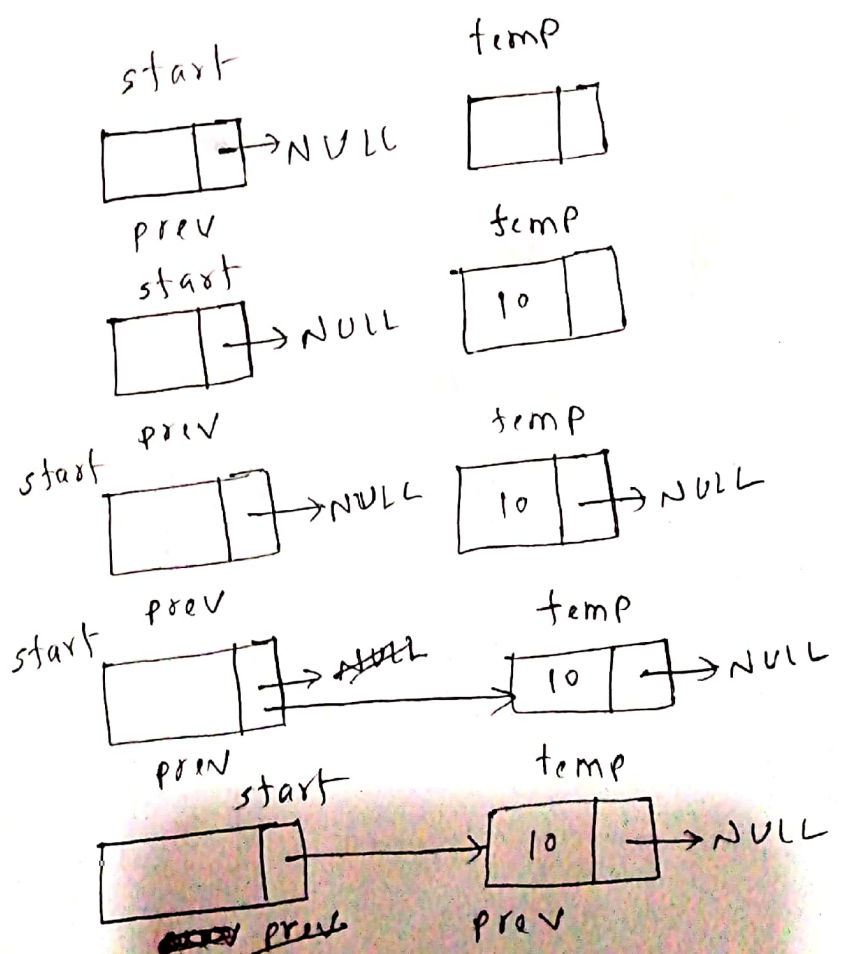 start temp
NULL
prev temp
start
10
NULL
prev temp
start
NULL 10 NULL
prev temp
start
NULL 10 NULL
prev temp
start
10 NULL
prev prev